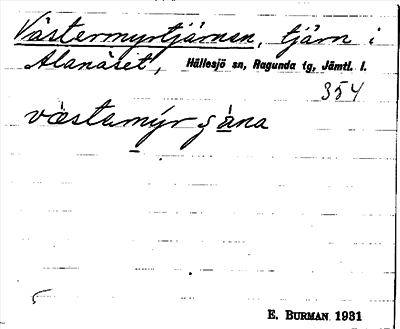 Västermyrtjärnen, tjärn i
Alanäset, Hällesjö sn, Ragunda tg, Jämtl. l.
354
västamýr ʃàna
E. BURMAN 1931